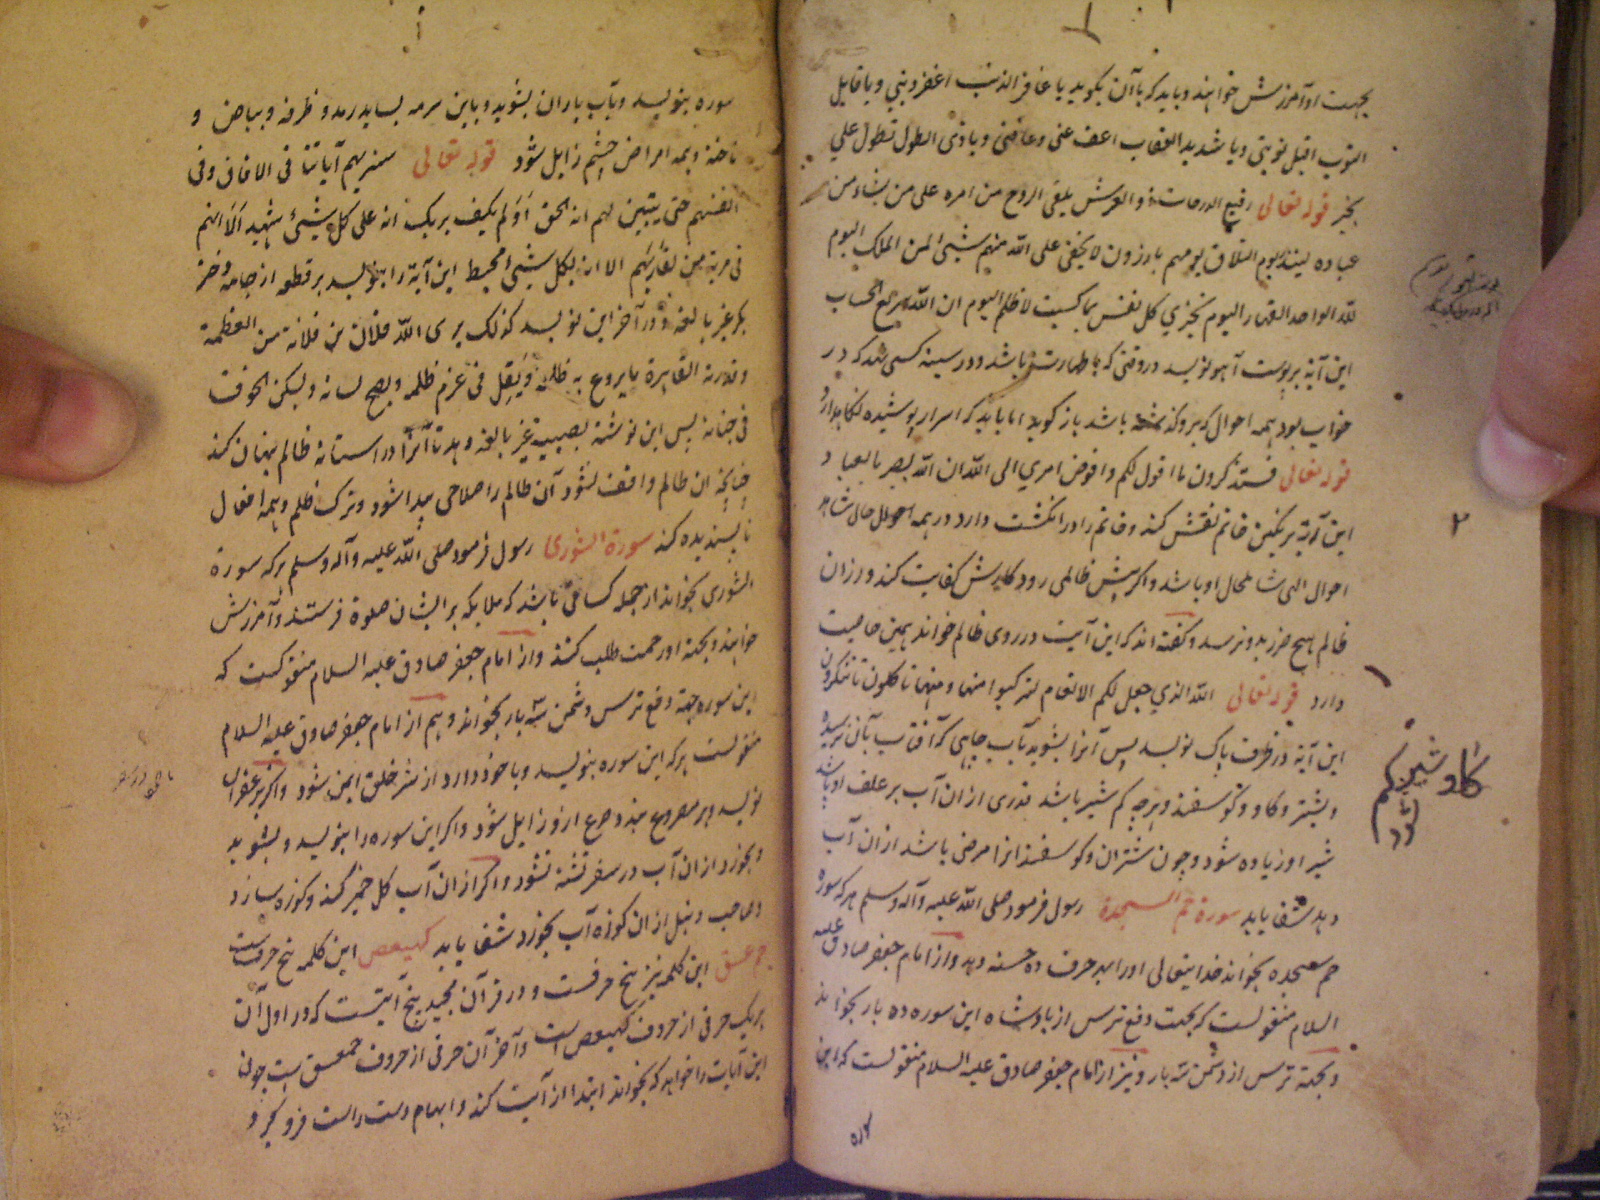 بجهت او آمرزش خواهند و باید که با آن بگوید یا غافر الذنب اغفر ذنبی و یا قابل
التوب اقبل توبتی و یا شدید العقاب اعف عنی و عافنی و یا ذی الطول تطول علی
بخیر قوله تعالی رفیع الدرجات ذو العرش یلقی الروح من امره علی من یشاء من
عباده لینذر یوم التلاق یوم هم بارزون لا یخفی علی الله منهم شیئ لمن الملک الیوم
لله الواحد القهار الیوم تجزی کل نفس بما کسبت لا ظلم الیوم ان الله سریع الحساب
این آیة بر پوست آهو نویسد در وقتی که با طهارت باشد و در سینه کسی نهد که در
خواب بود همه احوال که برو گذشته باشد باز گوید اما باید که اسرار پوشیده نگاهدارد
قوله تعالی فستذکرون ما اقول لکم و افوض امری الی الله ان الله بصیر بالعباد
این آیة بر نگین خاتم نقش کند و خاتم را در انگشت دارد در همه احوال
احوال الهی شامل حال او باشد و اگر پیش ظالمی رود کارش کفایت کند و ازان
ظالم هیچ ضرر بدو نرسد و گفته اند که این آیت در روی ظالم خواند همین خاصیت
دارد قوله تعالی الله الذی جعل لکم الانعام لترکبوا منها و منها تاکلون
این آیة در ظرف پاک نویسد پس آنرا بشوید بآب چاهی که آفتاب بآن نرسیده
و بشتر و گاو و گوسفند و هرچه کم شیر باشد قدری ازان آب بر علف او پاشد
شیر او زیاده شود و چون شتران و گوسفند انرا مرضی باشد ازان آب
دهد شفا یابد سورة حم السجدة رسول فرمود صلی الله علیه و آله وسلم هر که سوره
حم سجده بخواند خدایتعالی اورا بهر حرف ده حسنه دهد و از امام جعفر صادق علیه
السلام منقولست که بجهت دفع ترس از پادشاه این سوره ده بار بخواند
و بجهة ترس از دشمن سه بار و نیز از امام جعفر صادق علیه السلام منقولست که این
سوره
گاو شیر کم
۲
سوره بنویسد و بآب باران بشوید و باین سرمه بساید رمد و ظرفه و بیاض و
ناخنه و همه امراض چشم زایل شود قوله تعالی سنریهم آیاتنا فی الآفاق و فی
انفسهم حتی یتبین لهم انه الحق اَوَلم یکف بربک انه علی کل شیئ شهید اَلا انهم
فی مریة من لقاء ربهم الا انه بکل شیئ محیط این آیة را بنویسد بر قطعه از جامه
بکر غیر بالغه و در آخر این نویسد کذلک یری الله فلان بن فلانة من العظمة
و قدرته القاهرة ما یروع به ظلمه و یقل فی عزم ظلمه و یصح لسانه ویسکن الخوف
فی جنانه پس این نوشته بصبیه غیر بالغه دهد تا آنرا در استانهٔ ظالم پنهان کند
چنانچه ان ظالم واقف نشود آن ظالم را صلاحی پیدا شود و ترک ظلم و همه افعال
ناپسندیده کند سورة الشوری رسول فرمود صلی الله علیه و آله وسلم هر که سورة
الشوری بخواند از جمله کسانی باشد که ملایکه بر ایشان صلوة فرستند و آمرزش
خواهند و بجهة او رحمت طلب کنند و از امام جعفر صادق علیه السلام منقولست که
این سوره جهة دفع ترس دشمن سه بار بخواند و هم از امام جعفر صادق علیه السلام
منقولست هر که این سوره بنویسد و با خود دارد از شر خلق ایمن شود و اگر بزعفران
نویسد و بر مصروع بندد صرع ازو زایل شود و اگر این سوره را بنویسد و بشوید
و بخورد ازان آب در سفر تشنه نشود و اگر ازان آب گل خمیر کند و کوزه سازد
و صاحب دنبل ازان کوزه آب بخورد شفا یابد کهیعص این کلمه پنج حرفست
حمعسق این کلمه نیز پنج حرفست و در قرآن مجید پنج آیتست که در اول آن
هر یک حرفی از حروف کهیعص است و آخر آن حرفی از حروف حمعسق است چون
این آیات را خواهد که بخواند ابتدا از آیت کند و ابهام دست راست فرو گیرد و